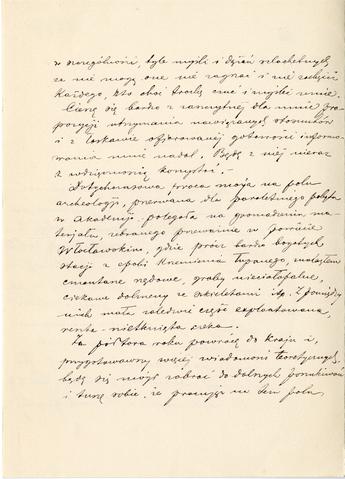 w szczególności, tyle myśli i dążeń szlachetnych,
że nie mogą one nie zagrzać i nie zachęcić
każdego, kto choć trochę czuć i myśleć umie.
Cieszę się bardzo z zaszczytnej dla mnie pro
pozycji utrzymania nawiązanych stosunków
i z łaskawie ofiarowanej gotowości informo
wania mnie nadal. Będę z niej nieraz
z wdzięcznością korzystał.
Dotychczasowa praca moja na polu
archeologji, przerwana dla paroletniego pobytu
w Akademji polegała na gromadzeniu ma
terjału, zebranego przeważnie w powiecie
Włocławskim, gdzie prócz bardzo bogatych
stacji z epoki Krzemienia łupanego, znalazłem
cmentarze rzędowe, groby nieciałopalne,
ciekawe dolmeny ze szkieletami itp. Z pomiędzy
nich mała zaledwie część eksploatowana,
reszta nietknięta czeka.
Za półtora roku powrócę do kraju i,
przygotowawszy więcej wiadomości teoretycznych,
będę się mógł zabrać do dalszych poszukiwań
i tuszę sobie, że pracując na tem polu